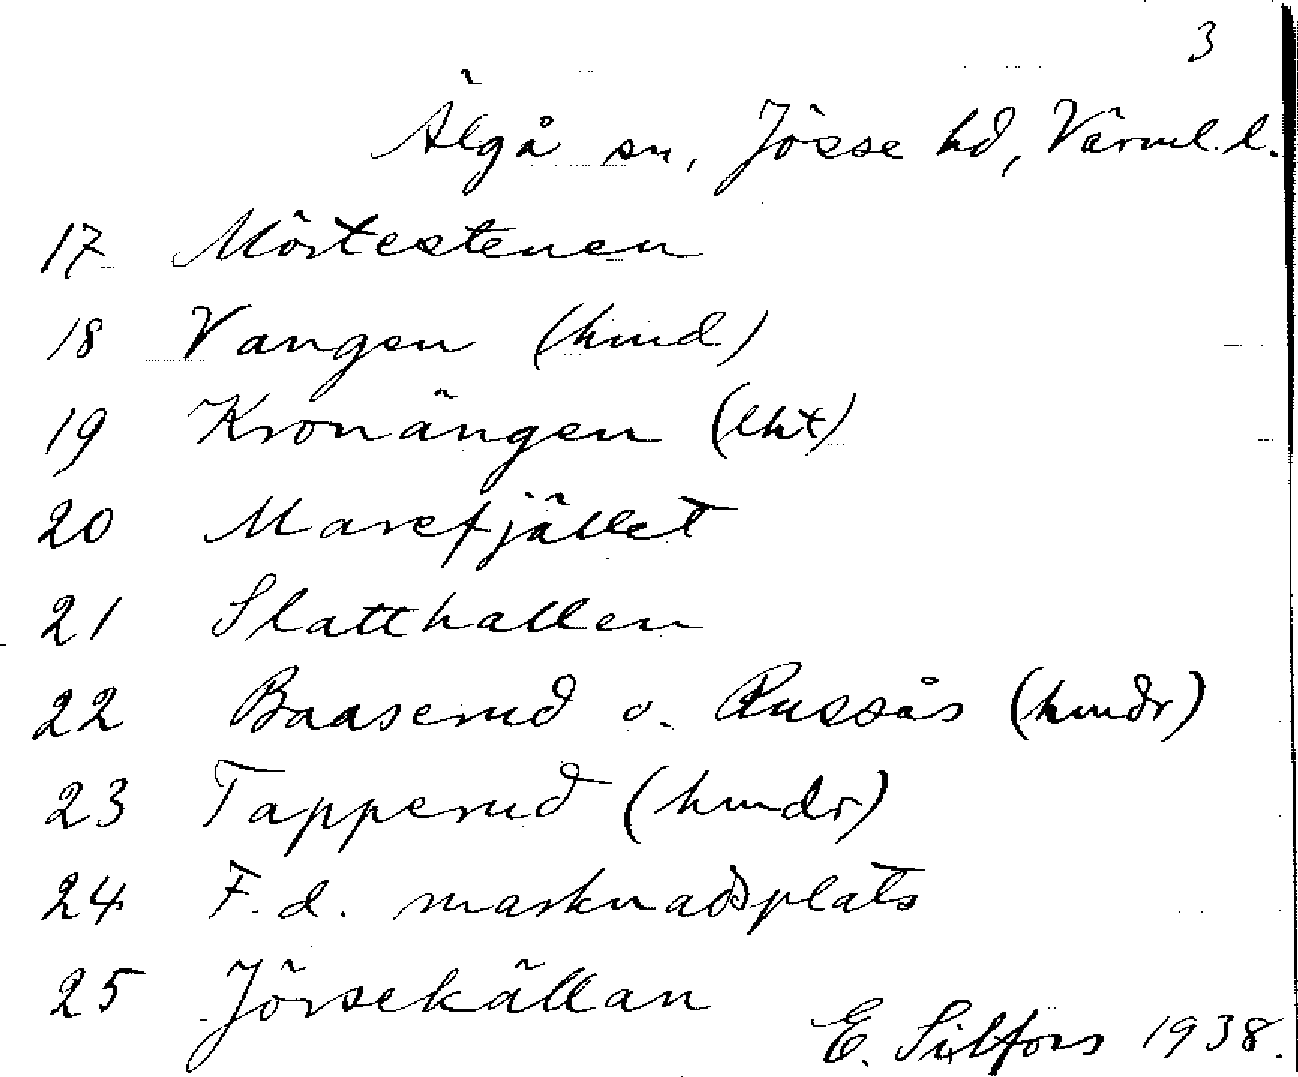 3
Älgå sn, Jösse hd, Värml. l.
17 Mörtestenen
18 Vangen (hmd)
19 Kronängen (lht)
20 Marefjället
21 Slatthallen
22 Baaserud o. Russås (hmdr)
23 Tapperud (hmdr)
24 F.d. marknadsplats
25 Jörsekällan
E. Silfors 1938.